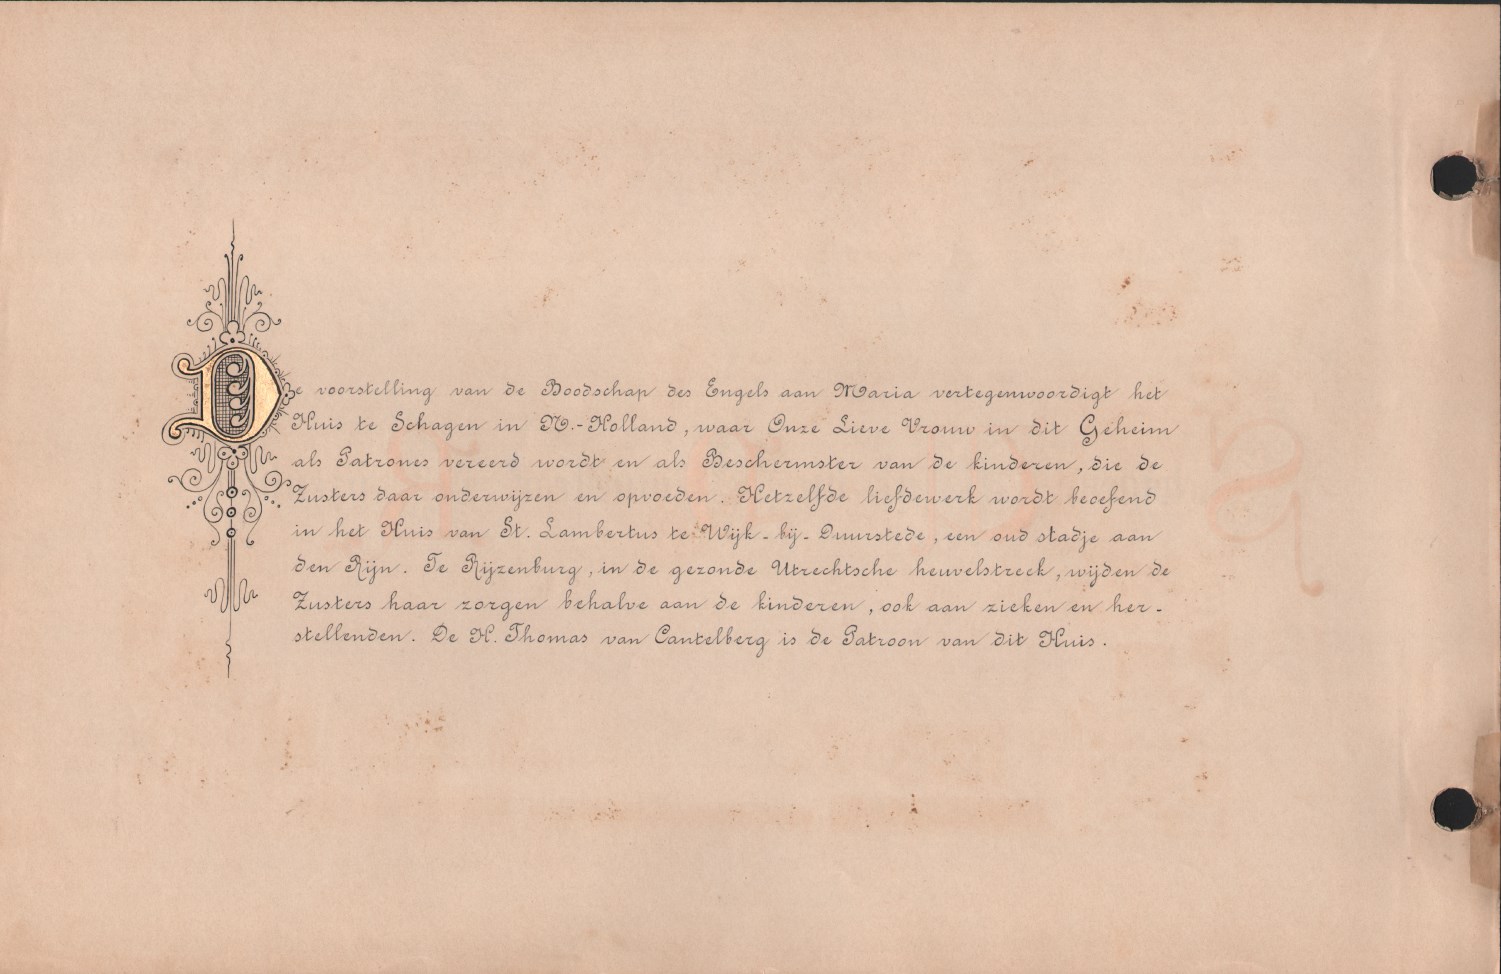 De voorstelling van de Boodschap des Engels aan Maria vertegenwoordigt het
Huis te Schagen in N.-Holland, waar Onze Lieve Vrouw in dit Geheim
als Patrones vereerd wordt en als Beschermster van de kinderen, die de
Zusters daar onderwijzen en opvoeden. Hetzelfde liefdewerk wordt beoefend
in het Huis van St. Lambertus te Wijk-bij-Duurstede, een oud stadje aan
den Rijn. Te Rijzenburg, in de gezonde Utrechtsche heuvelstreek, wijden de
Zusters haar zorgen behalve aan de kinderen, ook aan zieken en her-
stellenden. De H. Thomas van Cantelberg is de Patroon van dit Huis.